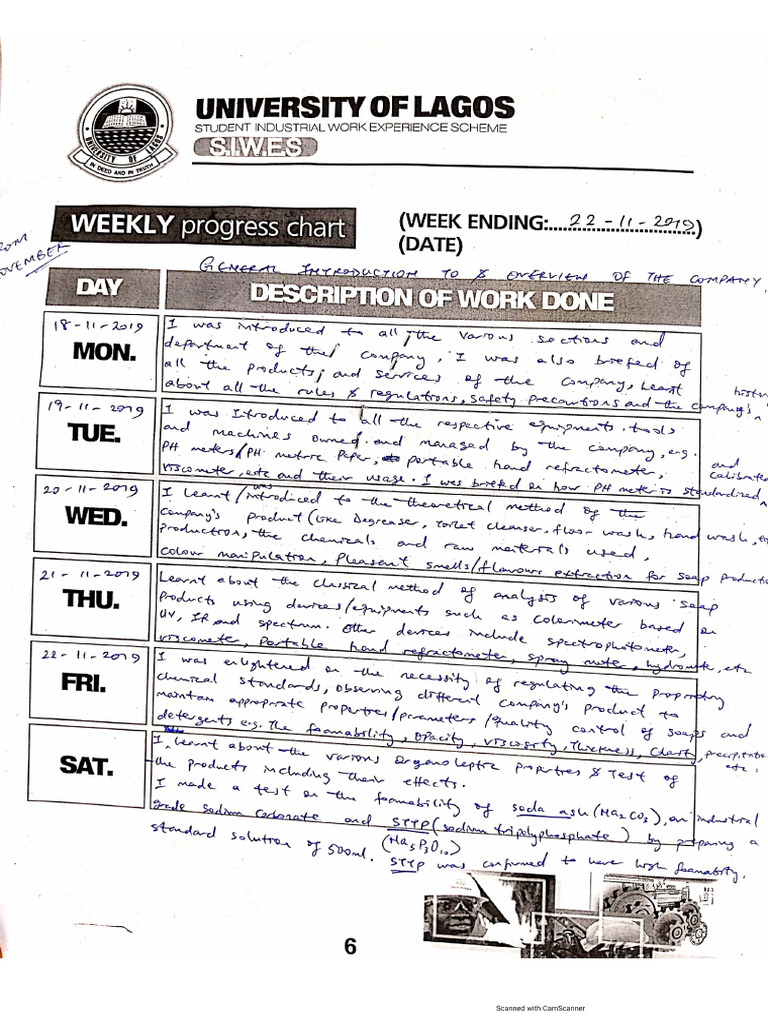 UNIVERSITY OF LAGOS
STUDENT INDUSTRIAL WORK EXPERIENCE SCHEME
S.I.W.E.S
UNIVERSITY OF LAGOS
IN DEED AND IN TRUTH
WEEKLY progress chart
(WEEK ENDING: 22-11-2019)
(DATE)
NOVEMBER
GENERAL INTRODUCTION TO & OVERVIEW OF THE COMPANY.
DAY
DESCRIPTION OF WORK DONE
18-11-2019
MON.
I was introduced to all the various sections and
department of the company, I was also briefed of
all the products, and services of the company, Learnt
about all the rules & regulations, safety precautions and the company's history
19-11-2019
TUE.
I was Introduced to all the respective equipments, tools
and machines owned and managed by the company, e.g.
PH meters/PH metric paper, portable hand refractometer,
viscometer, etc and their usage. I was briefed on how PH meter is standardized and calibrated
20-11-2019
WED.
I learnt/was introduced to the theoretical method of the
company's product (like Degreaser, toilet cleanser, floor wash, hand wash, etc
production, the chemicals and raw materials used,
colour manipulation, pleasant smells/flavours extraction for soap production
21-11-2019
THU.
Learnt about the classical method of analysis of various soap
products using devices/equipments such as colorimeter based on
UV, IR and spectrum. Other devices include spectrophotometer,
viscometer, portable hand refractometer, spray meter, hydromete, etc
22-11-2019
FRI.
I was enlightened on the necessity of regulating the propriety
chemical standards, observing different company's product to
maintain appropriate properties/parameters/quality control of soaps and
detergents e.g. The foamability, opacity, viscosity, Thickness, Clarity, precipitate
etc.
SAT.
I learnt about the various Organoleptic properties & test of
the products including their effects.
I made a test on the foamability of soda ash (Na2CO3), an industrial
grade sodium carbonate and STTP (sodium tripolyphosphate) by preparing a
(Na5P3O10)
standard solution of 500ml. STTP was confirmed to have high foamability.
6
Scanned with CamScanner